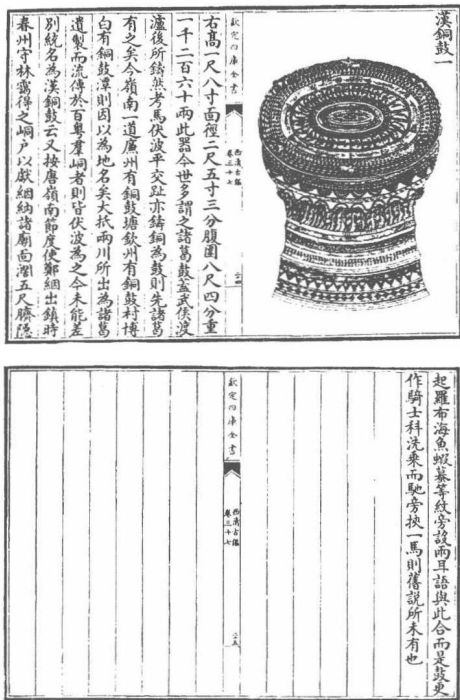 漢銅鼓一
右高一尺八寸面徑二尺五寸三分腹圍八尺四分重
一千二百六十兩此器今世多謂之諸葛鼓蓋武侯渡
瀘後所鑄然考馬伏波平交趾亦鑄銅為鼓則先諸葛
有之矣今嶺南一道廉州有銅鼓塘欽州有銅鼓村博
白有銅鼓潭則因以為地名矣大抵兩川所出為諸葛
遺製而流傳於百粤羣峒者則皆伏波為之今未能差
別統名為漢銅鼓云又按唐嶺南節度使鄭絪出鎮時
春州守林靄得之峒戶以獻絪納諸廟面濶五尺臍隱
欽定四庫全書
西清古鑑
卷三十七
二四
起羅布海魚蝦蟇等紋旁設兩耳語與此合而是鼓更
作騎士科洗乘而馳旁挾一馬則舊說所未有也
欽定四庫全書
西清古鑑
卷三十七
二五